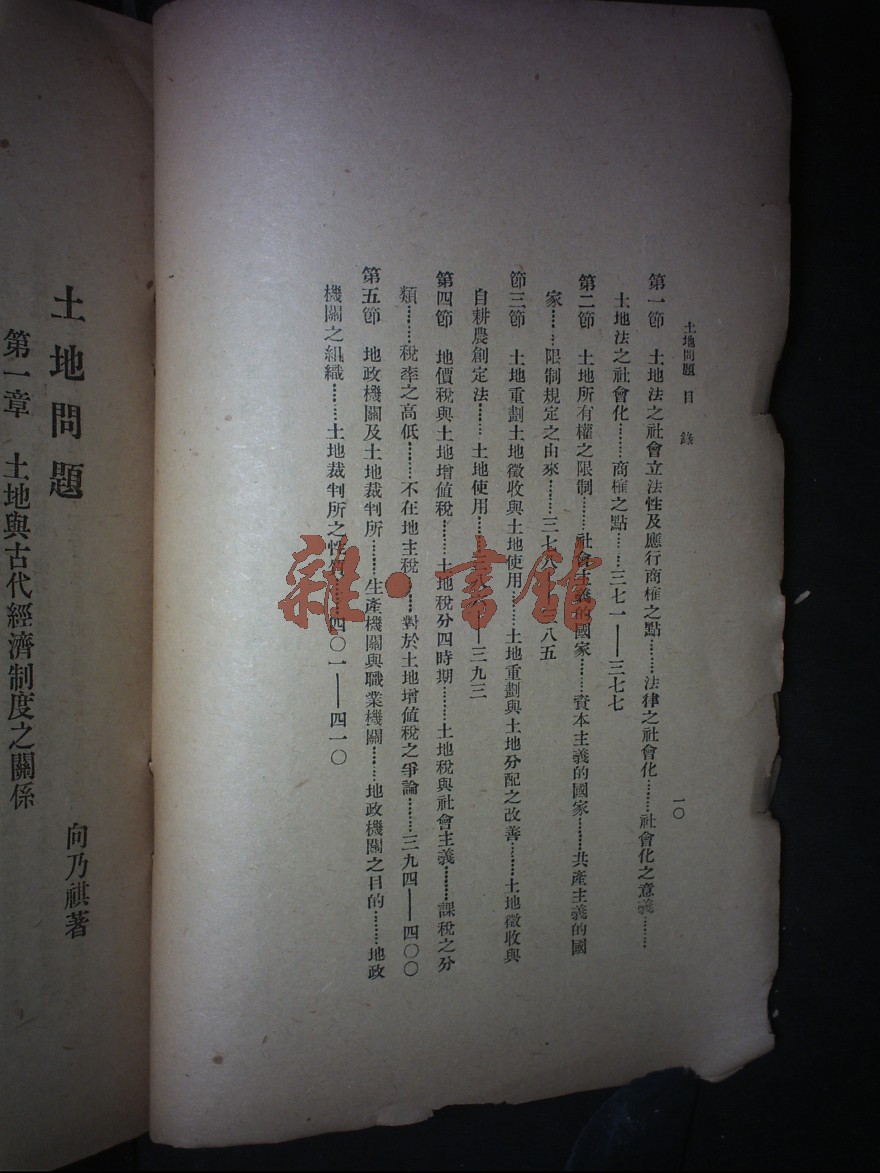 土地問題 目錄 一〇
第一節 土地法之社會立法性及應行商榷之點………法律之社會化………社會化之意義………
土地法之社會化………商榷之點………三七一——三七七
第二節 土地所有權之限制………社會主義的國家………資本主義的國家………共產主義的國
家………限制規定之由來………三七八 八五
節三節 土地重劃土地徵收與土地使用………土地重劃與土地分配之改善………土地徵收與
自耕農創定法………土地使用………三八六——三九三
第四節 地價稅與土地增值稅………土地稅分四時期………土地稅與社會主義………課稅之分
類………稅率之高低………不在地主稅………對於土地增值稅之爭論………三九四——四〇〇
第五節 地政機關及土地裁判所………生產機關與職業機關………地政機關之目的………地政
機關之組織………土地裁判所之性質………四〇一——四一〇
土地問題
向乃祺著
第一章 土地與古代經濟制度之關係
雜·書館